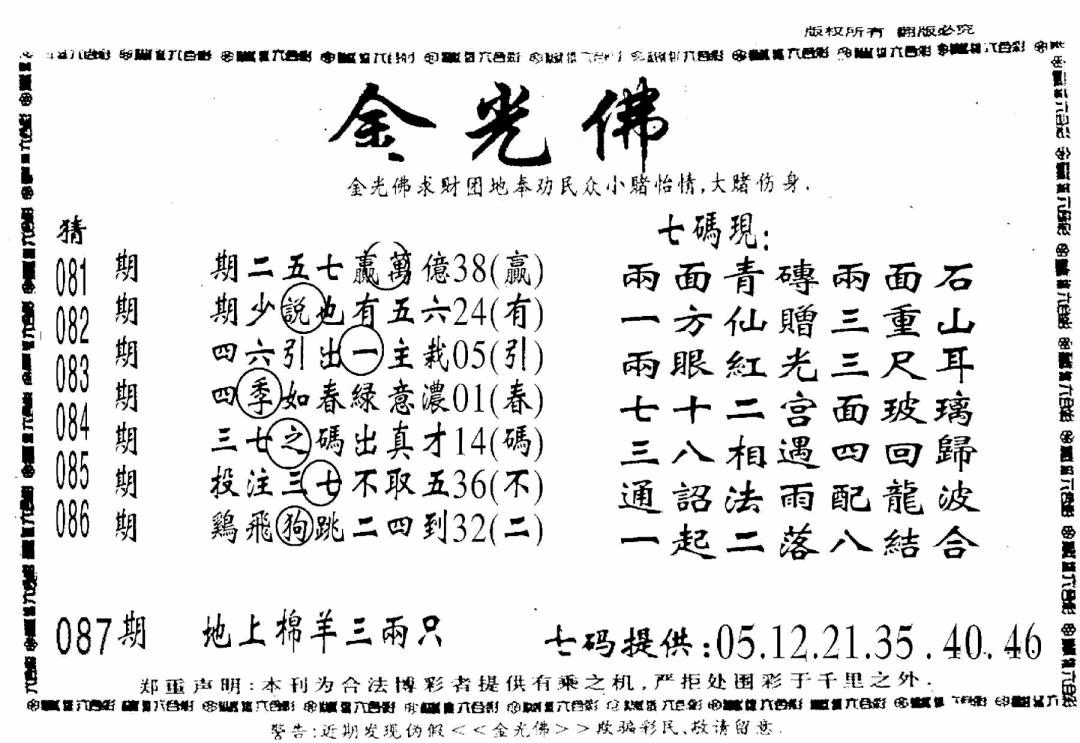 版权所有 翻版必究
金光佛
金光佛求财团地奉劝民众小赌怡情,大赌伤身.
猜
081期 期二五七贏萬億38(贏)
082期 期少説也有五六24(有)
083期 四六引出一主栽05(引)
084期 四季如春緑意濃01(春)
085期 三七之碼出真才14(碼)
086期 投注三七不取五36(不)
期 鷄飛狗跳二四到32(二)
七碼現:
兩面青磚兩面石
一方仙贈三重山
兩眼紅光三尺耳
七十二宫面玻璃
三八相遇四回歸
通詔法雨配龍波
一起二落八結合
087期 地上棉羊三兩只 七码提供:05.12.21.35.40.46
郑重声明:本刊为合法博彩者提供有乘之机,严拒处围彩于千里之外.
警告:近期发现伪假<<金光佛>>欺骗彩民,敬请留意.